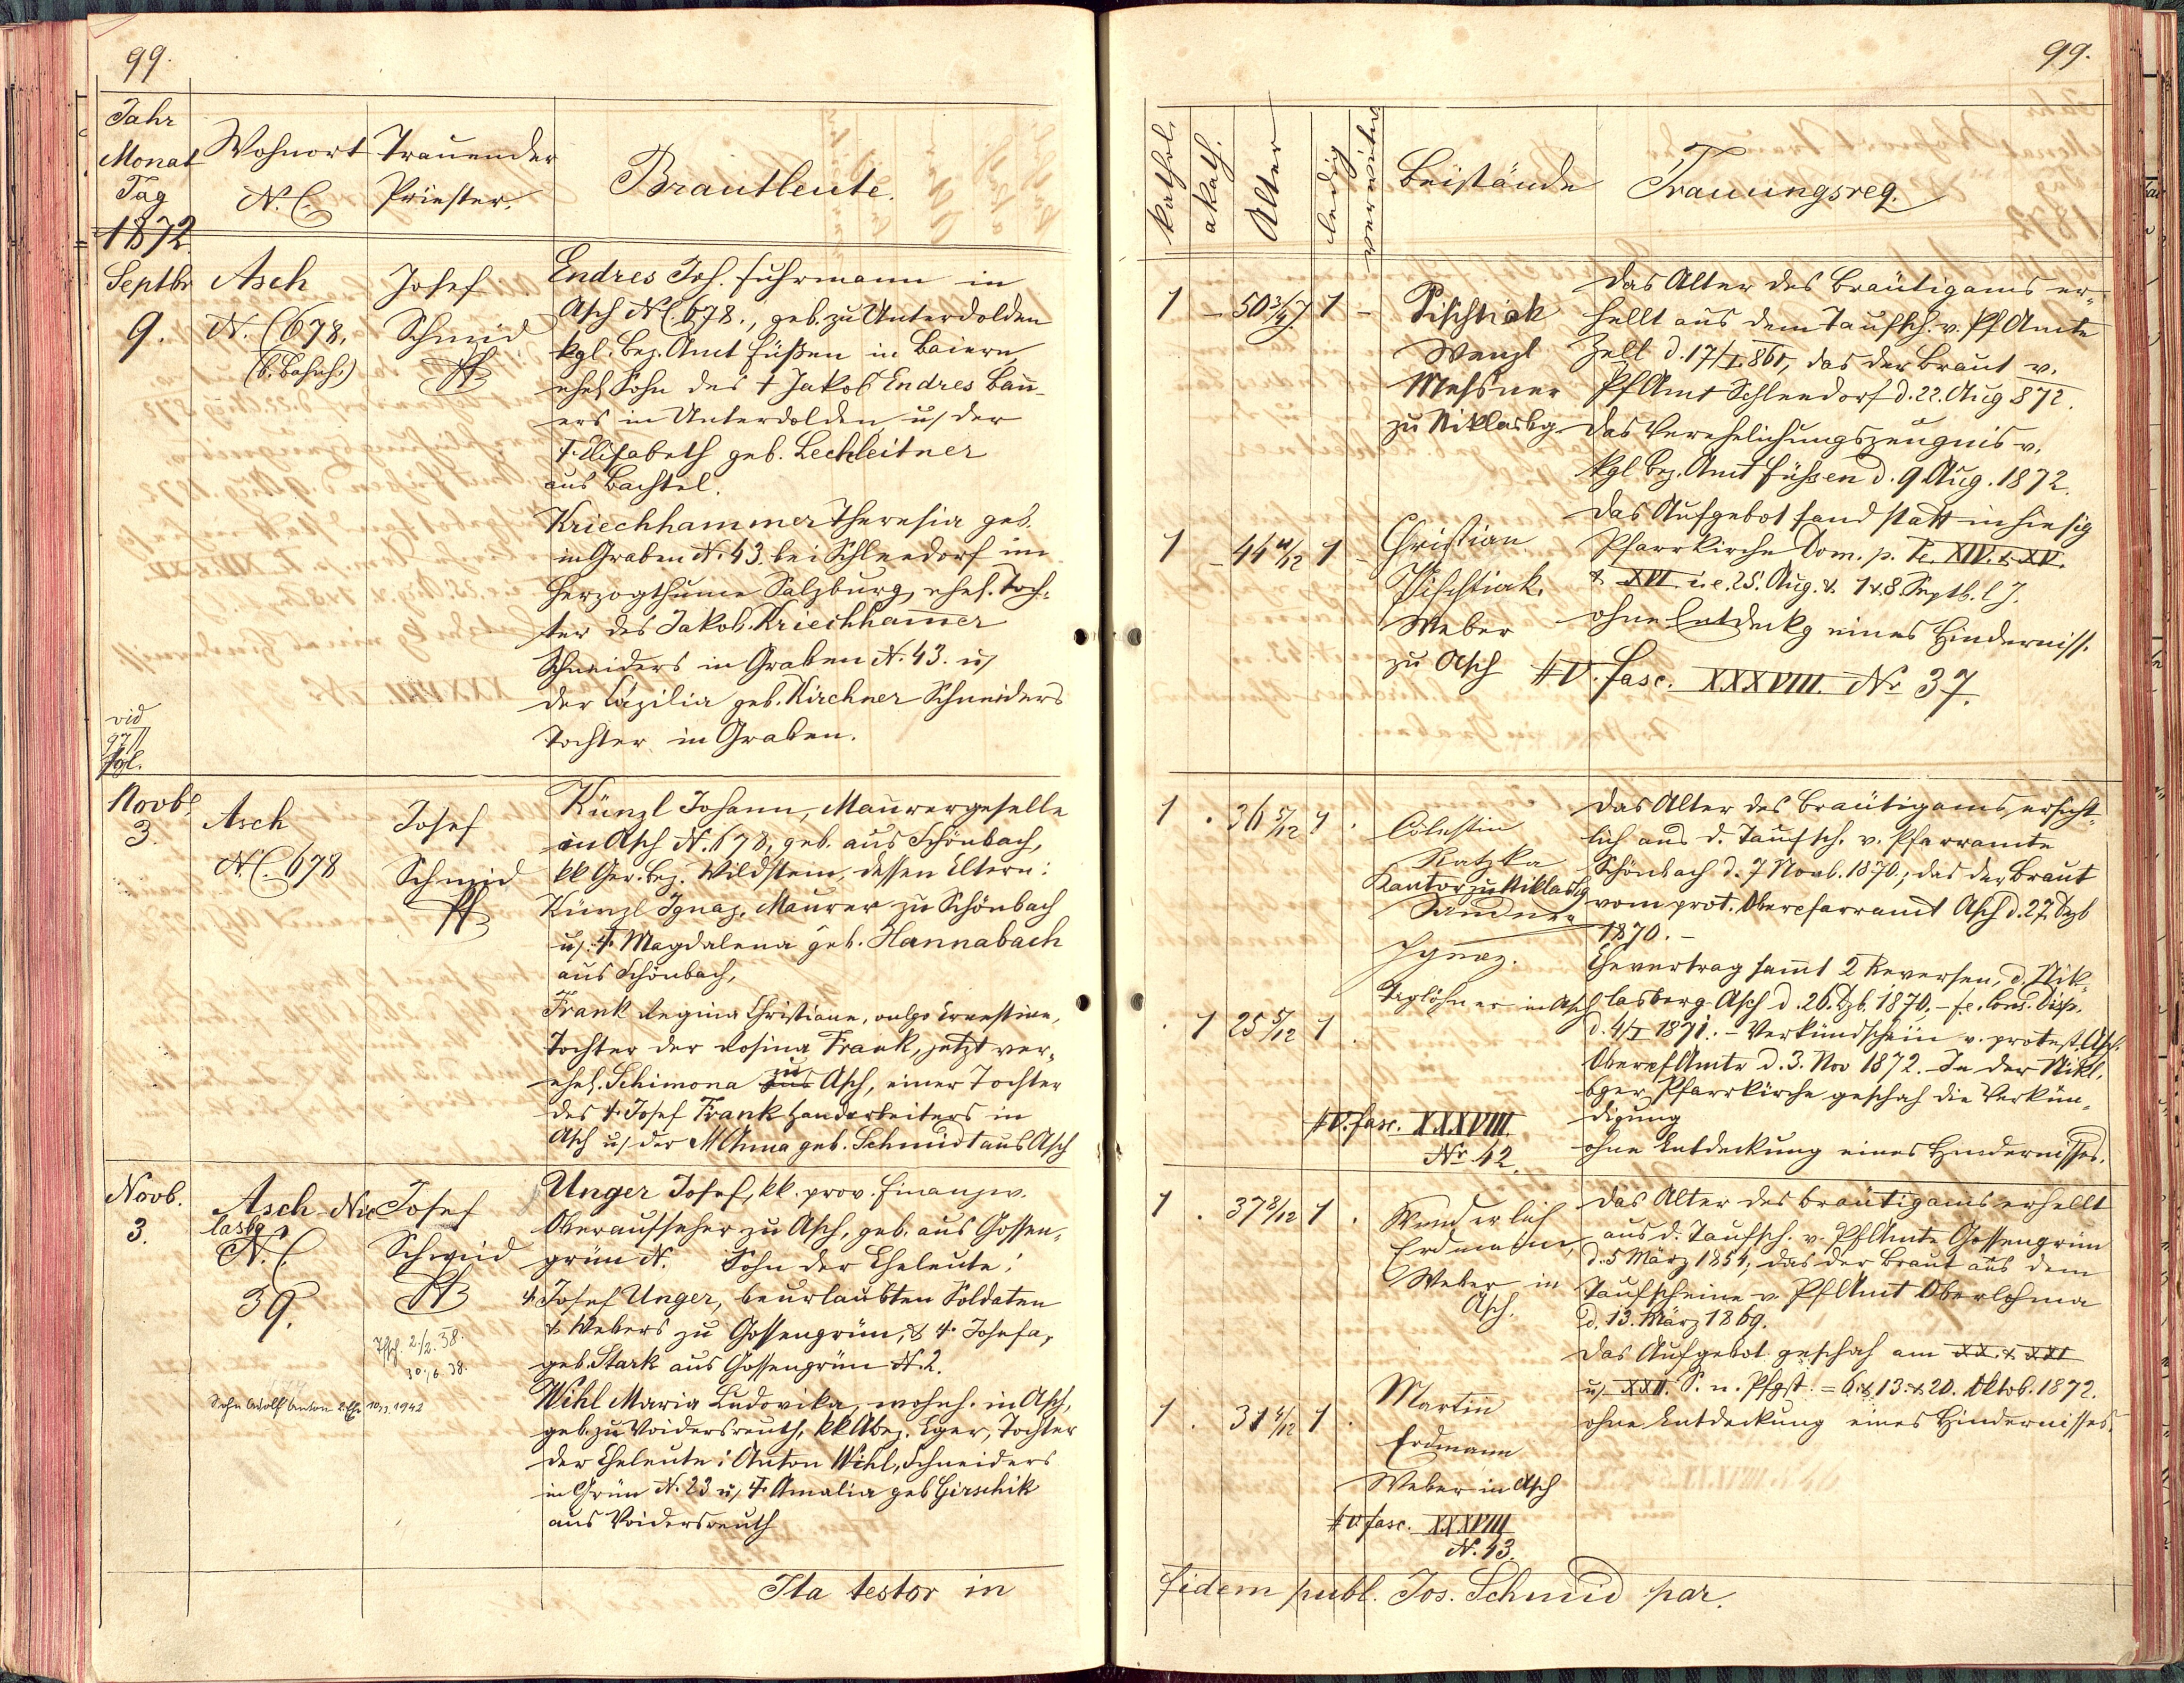 99.
Jahr
Monat
Tag
1872
Wohnort
N. C.
Trauender
Priester.
Brautleute.
Septbr
9.
Asch
N. C 678.
(b. Bahnh.)
Josef
Schmid
Pf
Endres Joh. Fuhrmann in
Asch N C. 678., geb. zu Unterdolden
kgl. Bez. Amt Füßen in Baiern,
ehel. Sohn des † Jakob Endres Bau-
ers in Unterdolden u. der
† Elisabeth geb. Lechleitner
aus Bachtel.
Kriechhammer Theresia geb.
in Graben N. 43. bei Schleedorf im
Herzogthume Salzburg, ehel. Toch-
ter des Jakob Kriechhamer
Schneiders in Graben N. 43. u.
der Cäzilia geb. Kirchner Schneiders
Tochter in Graben.
vid
97
fgl.
Novb.
3.
Asch
N. C. 678
Josef
Schmid
Pf
Künzl Johann, Maurergeselle
in Asch N. 678, geb. aus Schönbach,
kk Ger. Bez. Wildstein, dessen Eltern:
Künzl Ignaz, Maurer zu Schönbach
u. † Magdalena geb. Hannabach
aus Schönbach,
Frank Regina Christiane, vulgo Ernestine,
Tochter der Rosina Frank, jetzt ver-
ehel. Schimona aus zu Asch, einer Tochter
des † Josef Frank Handarbeiters in
Asch u. der M Anna geb. Schmidt aus Asch
Novb.
3.
Asch-Nic
lasbg
N. C.
39.
Josef
Schmid
Pf
2./2. 38.
30./6 38.
Sohn Adolf Anton 2. Ehe 10./3. 1942
Unger Josef, kk. prov. Finanzw.
Oberaufseher zu Asch, geb. aus Gossen-
grün N. Sohn der Eheleute:
† Josef Unger, beurlaubten Soldaten
& Webers zu Gossengrün, & † Josefa,
geb. Stark aus Gossengrün N. 2.
Wihl Maria Ludovika, wohnh. in Asch,
geb. zu Voidersreuth, kk Abez. Eger, Tochter
der Eheleute: Anton Wihl, Schneiders
in Grün N. 23 u. † Amalia geb Girschik
aus Voidersreuth
Ita testor in
99.
kathol.
akath.
Alter
ledig
verwitw
Beistände
Trauungsreq.
1 - 50 3/4 J. 1 -
Pischtiak
Wenzl
Messner
zu Niklasbg
Das Alter des Bräutigams er-
hellt aus dem Taufsch. v. Pf Amte
Zell d. 17/I. 861, das der Braut v.
Pf Amt Schleedorf d. 22. Aug 872.
Das Verehelichungszeugnis v.
kgl Bez. Amt Füssen d. 9 Aug. 1872.
Das Aufgebot fand statt in hiesig
Pfarrkirche Dom. p. Pe. XIV. & XV.
& XVI i. e. 25. Aug. & 1 & 8. Septb. l J.
ohne Entdeckg eines Hinderniss.
1 - 44 11/12 1 -
Christian
Pischtiak,
Weber
zu Asch
# V. fasc. XXXVIII. Nr 37.
1 . 36 5/12 1 .
Cölestin
Ratzka
Kantor zu Niklasbg
Ignaz.
Taglöhner in Asch
Das Alter des Bräutigams ersicht-
lich aus d. Taufsch. v. Pfarramte
Schönbach d. 7 Novb. 1870., das der Braut
vom prot. Oberpfarramt Asch d. 27. Dezb
1870. -
Ehevertrag sammt 2 Reversen, d. Nik-
lasberg Asch d. 26. Dzb. 1870. - f. e. Cons. Disp.
d. 4/I 1871. - Verkündschein v. protest. Asch.
Oberpf Amte d. 3. Nov 1872. In der Nikl.
bger Pfarrkirche geschah die Verkün-
digung
ohne Entdeckung eines Hindernisses.
. 1 25 5/12 1 .
# V. fasc. XXXVIII.
Nr. 42.
1 . 37 8/12 1 .
Wunderlich
Erdmann,
Weber in
Asch.
Das Alter des Bräutigams erhellt
aus d. Taufsch. v. Pf Amte Gossengrün
d. 5 März 1851, das der Braut aus dem
Taufscheine v. Pf Amt Oberlohma
d. 13. März 1869.
Das Aufgebot geschah am XX. & XXI
u. XXII. S. n. Pfgst. = 6. & 13. & 20. Oktob. 1872.
ohne Entdeckung eines Hindernisses.
1 . 31 4/12 1 .
Martin
Erdmann
Weber in Asch
# V fasc. XXXVIII
N. 43.
fidem publ. Jos. Schmid par.